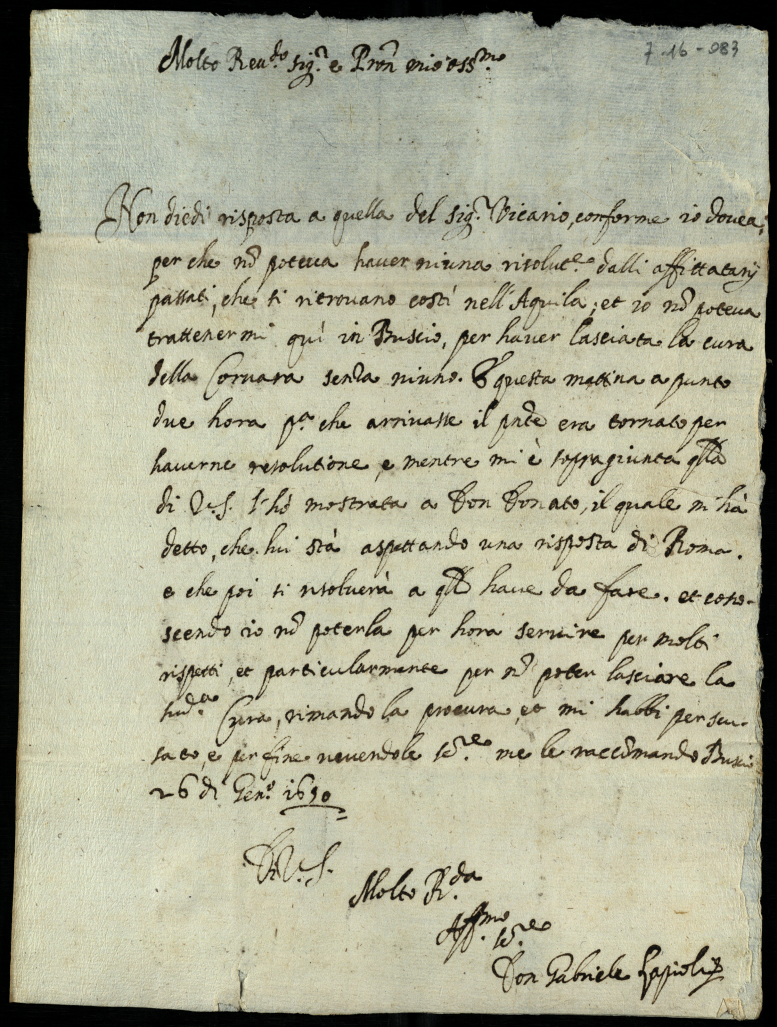 7-16-083
Molto Reu.do sig.r e Pron mio oss.mo
Non diedi risposta a quella del sig.r Vicario, conforme io douea,
per che nō poteua hauer niuna risolut.e dalli affittatarij
passati, che si ritrouano costì nell'Aquila; et io nō poteua
trattenermi quì in Buscio, per hauer lasciata la cura
della Coruara senza niuno. E questa mattina a punto
due hora p.a che arriuasse il pnte era tornato per
hauerne resolutione, e mentre mi è sopragiunta qlla
di V.S. l'hò mostrata a Don Donato, il quale m'hà
detto, che lui stà aspettando una risposta di Roma.
e che poi si risoluerà a qll haue da fare. et cono-
scendo io nō poterla per hora seruire per molti
rispetti, et particularmente per nō poter lasciare la
sud.a Cura, rimando la procura, et mi habbi per scu-
sato, e per fine uiuendole se.re me le raccōmando Buscio
26 di Gen.o 1650
Di V.S.
Molto R.da
Aff.mo se.re
Don Gabriele